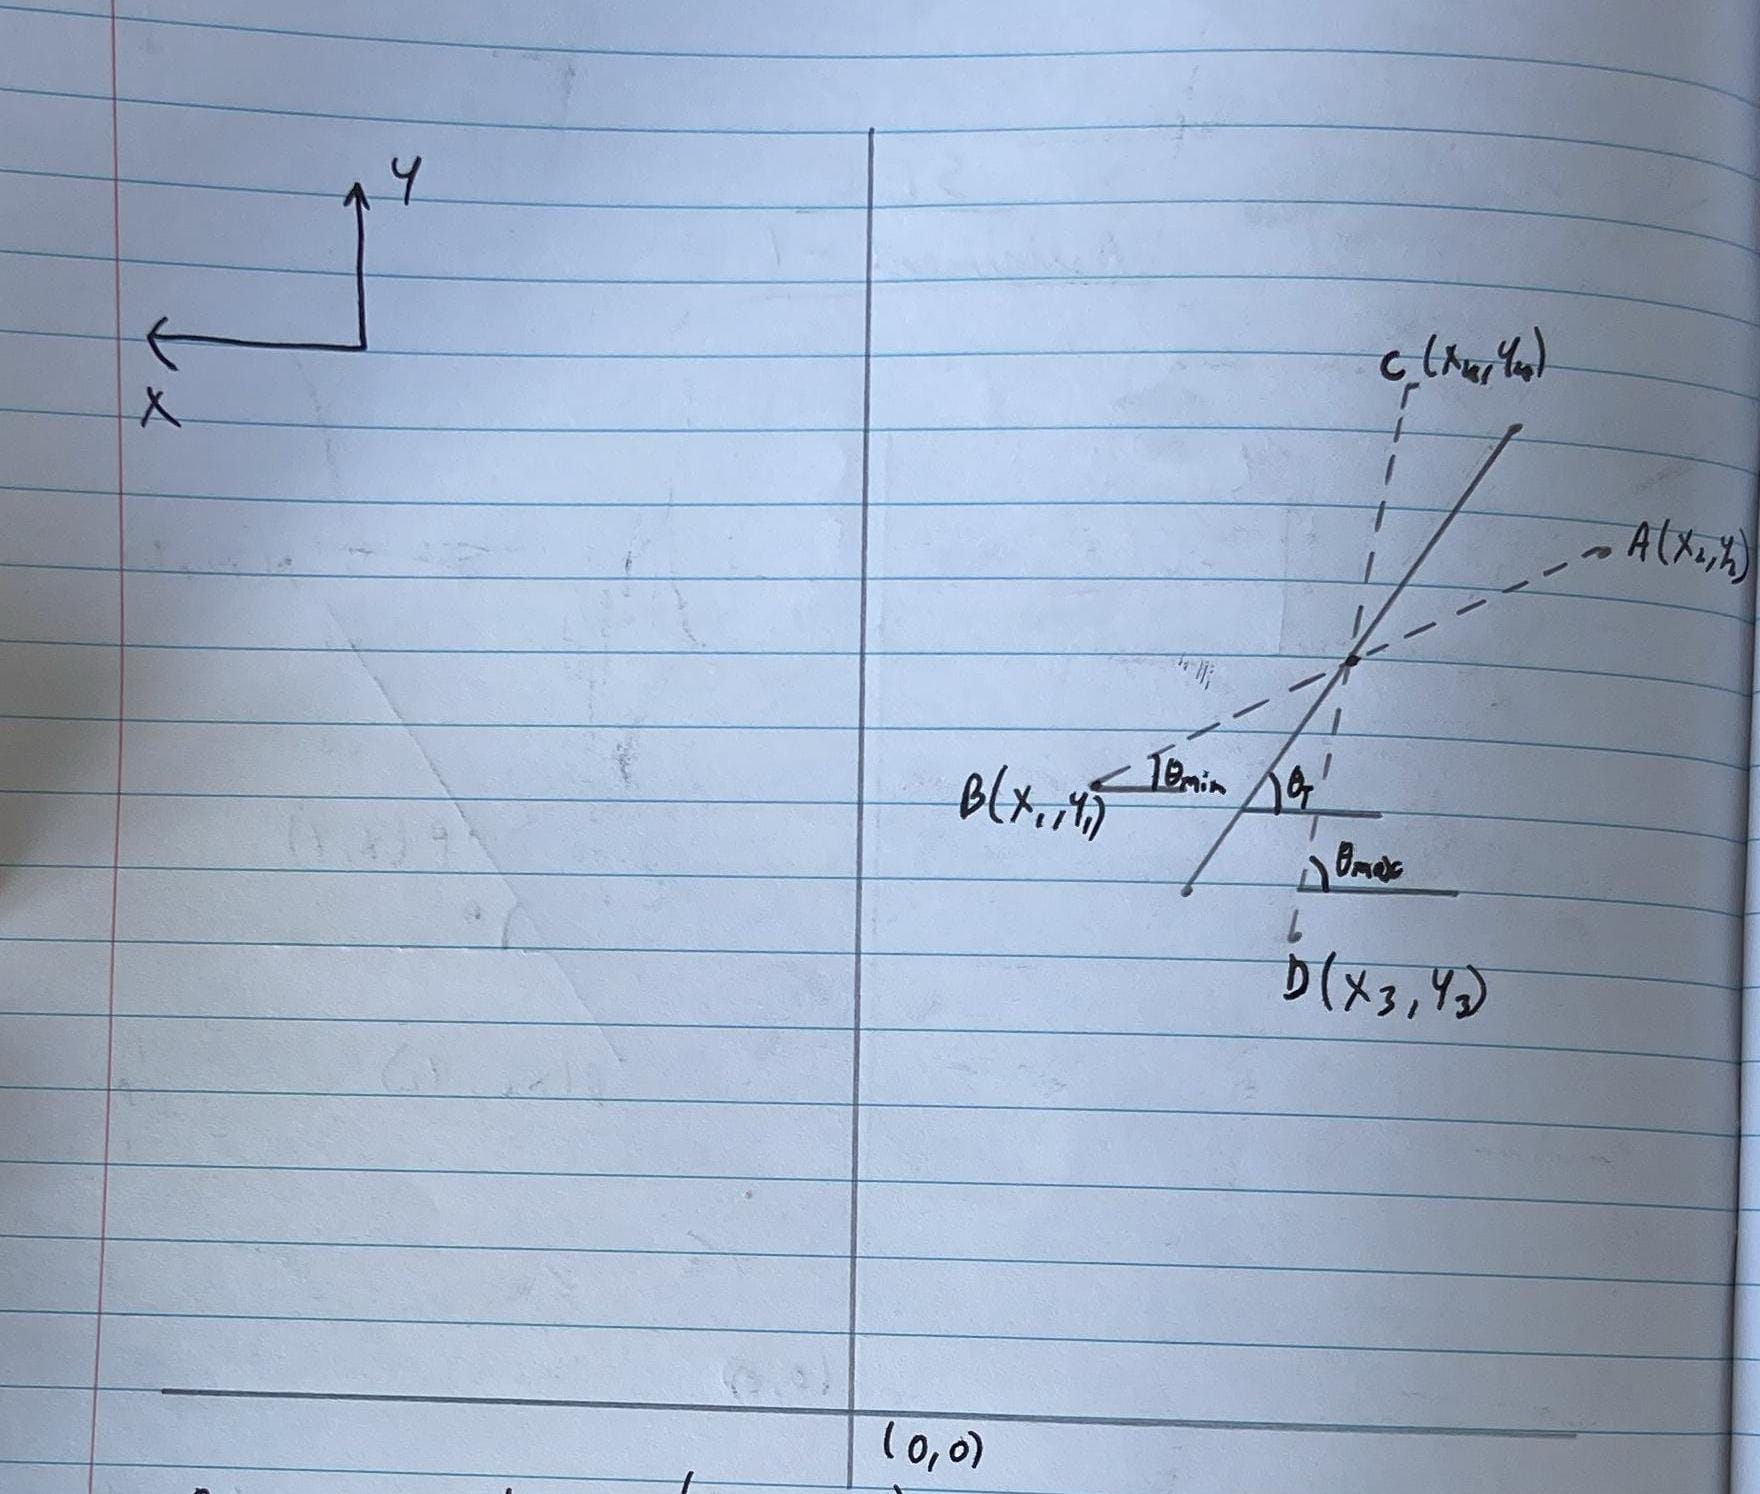 Y
X
C (x₄, y₄)
A(x₂, y₂)
B(x₁, y₁)
θmin
θT
θmax
D(x₃, y₃)
(0,0)